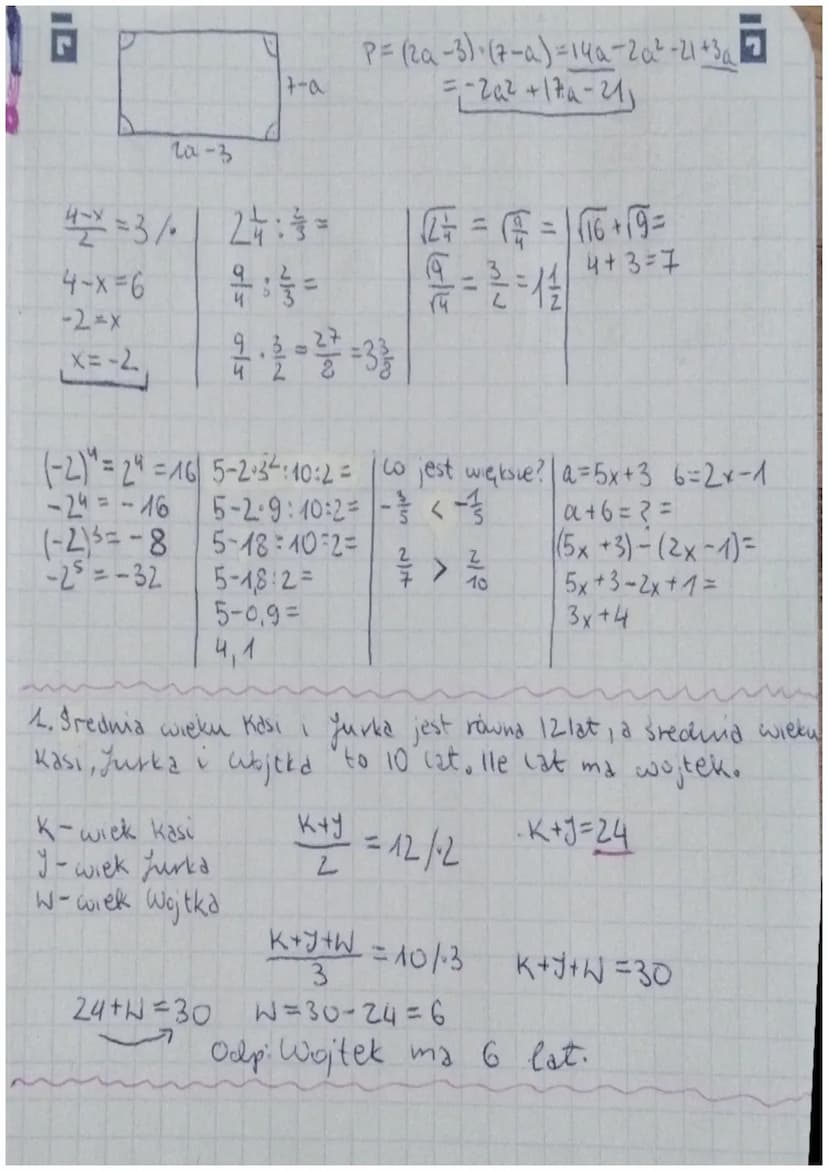 P=(2a-3)·(7-a)=14a-2a²-21+3a
=-2a²+17a-21
7-a
2a-3
4-x/2=3/·
4-x=6
-2=x
x=-2
2 1/4 : 2/3=
9/4 : 2/3=
9/4 · 3/2=27/8=3 3/8
√2 1/4 = √9/4 =
√9/√4=3/2=1 1/2
√16+√9=
4+3=7
(-2)⁴=2⁴=16
-2⁴=-16
(-2)³=-8
-2⁵=-32
5-2·3²:10:2=
5-2·9:10:2=
5-18:10:2=
5-1,8:2=
5-0,9=
4,1
Co jest większe?
-3/5 < -1/5
2/7 > 2/10
a=5x+3 b=2x-1
a+b=?=
(5x+3)-(2x-1)=
5x+3-2x+1=
3x+4
1. Średnia wieku Kasi i Jurka jest równa 12 lat, a średnia wieku
Kasi, Jurka i Wojtka to 10 lat. Ile lat ma wojtek.
K-wiek Kasi
J-wiek Jurka
W-wiek Wojtka
K+J/2=12/·2
K+J=24
K+J+W/3=10/·3
K+J+W=30
24+W=30 W=30-24=6
Odp: Wojtek ma 6 lat.